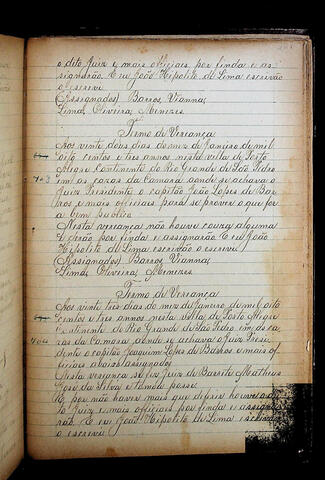 o dito Juiz e mais officiais por finda e as-
signarão. E eu João Hipolito de Lima escrivão
o escrevi.
(Assignados) Barros, Vianna,
Lima, Oliveira, Menezes.
Termo de Vereança
Aos vinte dous dias do mez de Janeiro de mil
oito centos e tres annos nesta villa de Porto
Alegre Continente do Rio Grande de São Pedro
em as cazas da Camara aonde se achava o
Juiz Presidente o capitão João Lopes de Bar
ros e mais officiais para se prover o que for
a bem publico.
Nesta vereança não houve couza alguma
e derão por finda e assignarão. E eu João
Hipolito de Lima escrivão o escrevi.
(Assignados) Barros, Vianna,
Lima, Oliveira, Menezes
Termo de Vereança
Aos vinte tres dias do mez de Janeiro de mil oito
centos e tres annos nesta villa de Porto Alegre
Continente do Rio Grande de São Pedro, em as ca-
zas da Camara aonde se achava o Juiz Presi-
dente o capitão Joaquim Lopes de Barros e mais of-
ficiais abaixo assignados.
Nesta vereança se fez Juiz de Barrita Matheus
Jose da Silva e tomou posse.
E por não haver mais que deferir houve o di-
to Juiz e mais officiais por finda e assigna-
rão. E eu João Hipolito de Lima escrivão
o escrevi